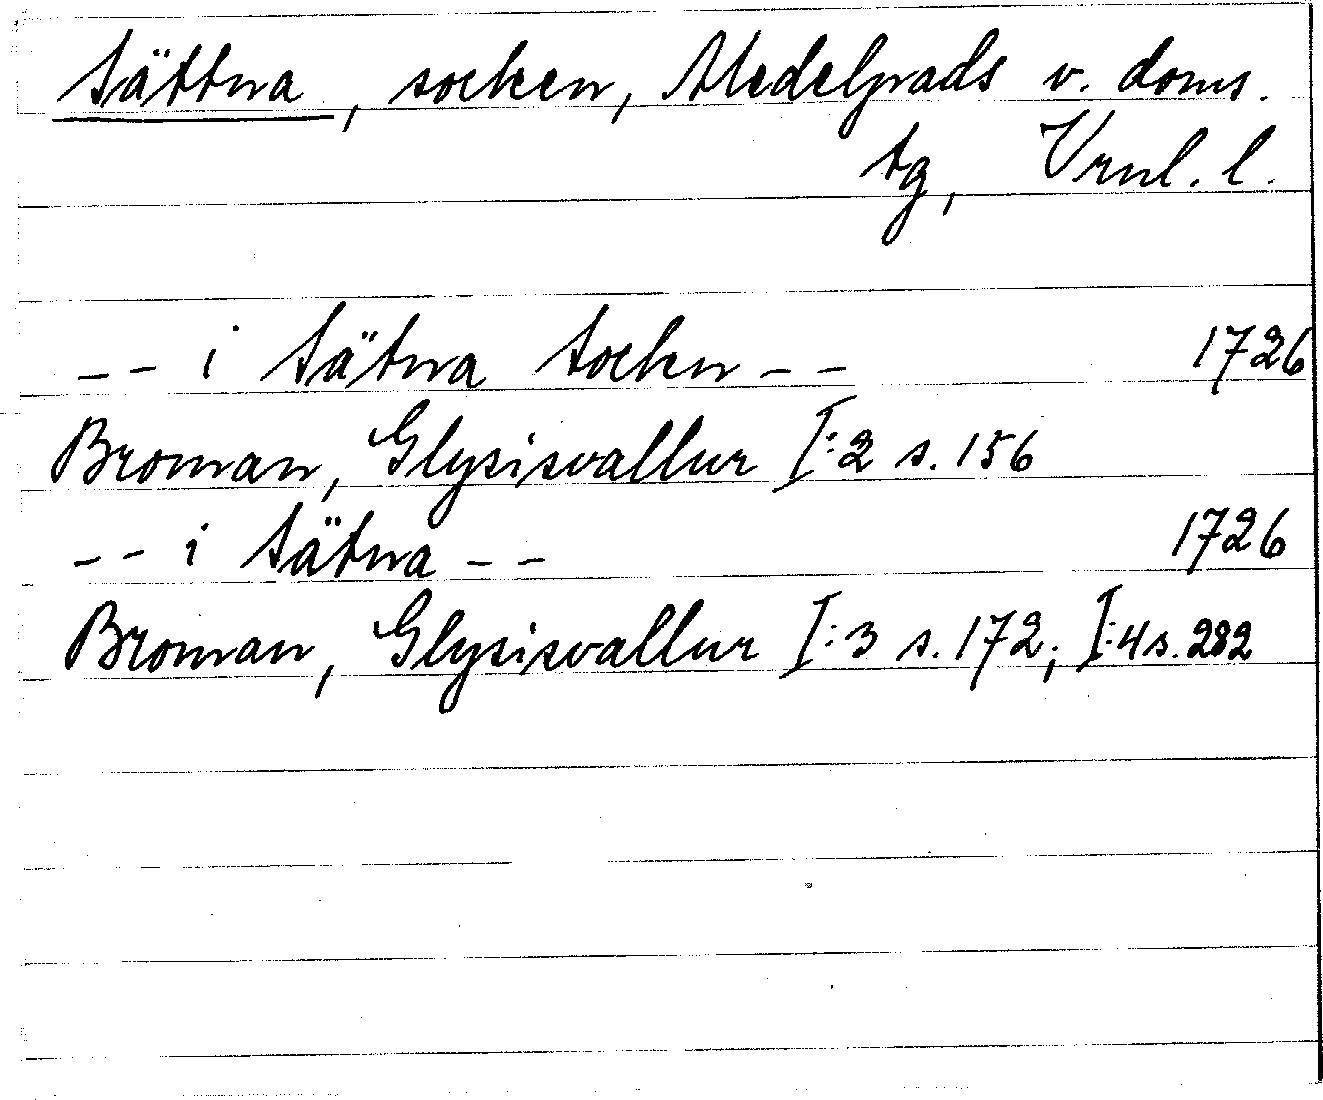 Sättna, socken, Medelpads v. doms.
tg, Vrnl. l.
-- i Sätna Socken -- 1726
Broman, Glysisvallur I:2 s. 156
-- i Sätna -- 1726
Broman, Glysisvallur I:3 s. 172; I:4 s. 282